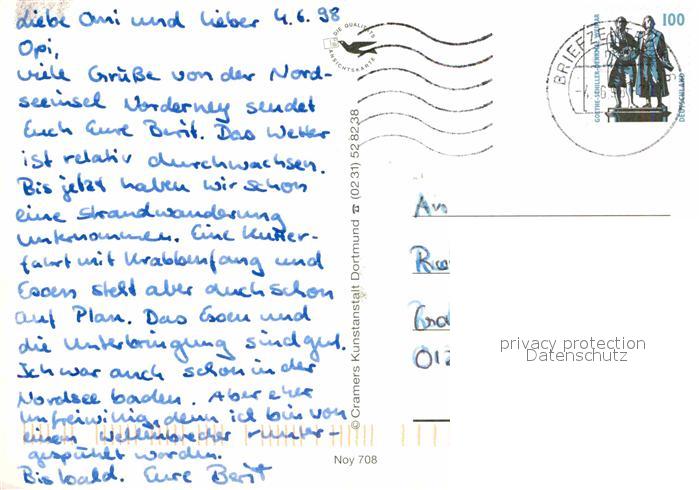 liebe Omi und lieber 4.6.98
Opi,
viele Grüße von der Nord-
seeinsel Norderney sendet
Euch Eure Berit. Das Wetter
ist relativ durchwachsen.
Bis jetzt haben wir schon
eine Strandwanderung
unternommen. Eine Kutter-
fahrt mit Krabbenfang und
Essen steht aber auch schon
auf Plan. Das Essen und
die Unterbringung sind gut.
Ich war auch schon in der
Nordsee baden. Aber eher
unfreiwillig, denn ich bin von
einem Wellenbrecher runter-
gespühlt worden.
Bis bald. Eure Berit
DIE QUALITÄTS
ANSICHTSKARTE
© Cramers Kunstanstalt Dortmund ☎ (02 31) 52 82 38
Noy 708
BRIEFZE
GOETHE-SCHILLER-DENKMAL WEIMAR
100
DEUTSCHLAND
An
012
privacy protection
Datenschutz